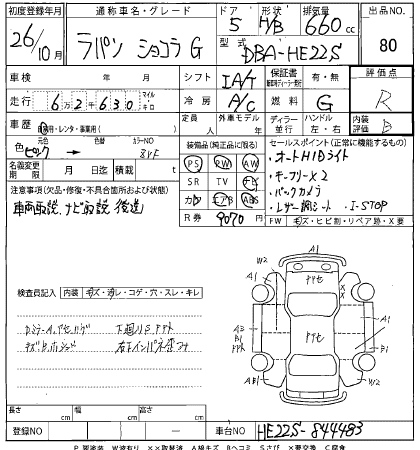 初度登録年月 通称車名・グレード ドア 形状 排気量 出品NO.
26/10月 ラパン ショコラ G 5 H/B 660cc 80
型式 DBA-HE22S
車検 年 月 シフト IAT 保証書 有・無 評価点
走行 6万2千630 マイル キロ 冷房 A/C 燃料 G R
車歴 自家用・レンタ・事業用( ) 定員 人 外車モデル 年 ディーラー 並行 ハンドル 左・右 内装評価 D
色 元色 ピンク 色替 カラーNO ZVF 装備品(純正品に限る) セールスポイント(正常に機能するもの)
名義変更期限 月 日迄 積載 t PS PW AW ・オートHIDライト
注意事項(欠品・修復・不具合箇所および状態) SR TV ナビ ・キーフリーX2
車両取説、ナビ取説 後送 カワ エアB ABS ・バックカメラ
R券 9070円 ・レザー調シート ・I-STOP
FW キズ・ヒビ割・リペア跡・X要
検査員記入 内装 キズ・汚レ・コゲ・穴・スレ・キレ
A1
W2 A1
ヤケ
X X
A3 B1 ヤケ A1
B1
A B1 W2
A1
長さ cm 幅 cm 高さ cm
登録NO ー 車台NO HE22S-844483
P要塗装 W波有り XX取替済 A線キズ Bヘコミ Sサビ X要交換 C腐食